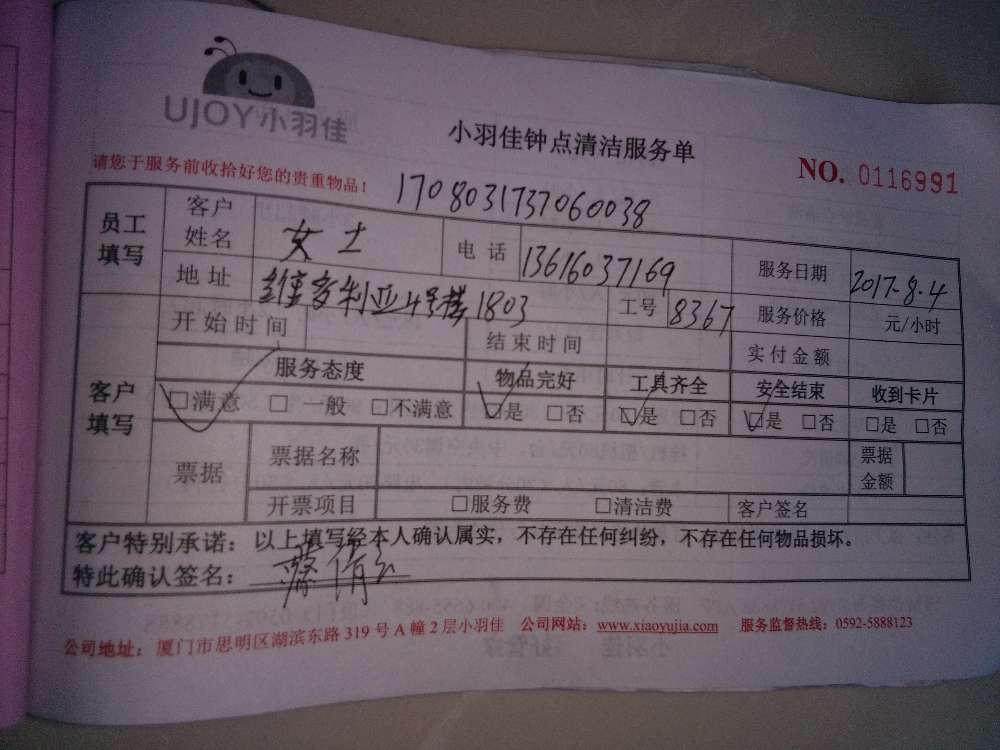 UJOY小羽佳
小羽佳钟点清洁服务单
请您于服务前收拾好您的贵重物品！
NO. 0116991
1708031737060038
员工填写 客户姓名 女士 电话 13616037169 服务日期 2017.8.4
地址 维多利亚4号楼1803 工号 8367 服务价格 元/小时
客户填写 开始时间 结束时间 实付金额
服务态度 物品完好 工具齐全 安全结束 收到卡片
□满意 □一般 □不满意 □是 □否 □是 □否 □是 □否 □是 □否
票据 票据名称 票据金额
开票项目 □服务费 □清洁费 客户签名
客户特别承诺：以上填写经本人确认属实，不存在任何纠纷，不存在任何物品损坏。
特此确认签名：
公司地址：厦门市思明区湖滨东路319号A幢2层小羽佳 公司网站：www.xiaoyujia.com 服务监督热线：0592-5888123